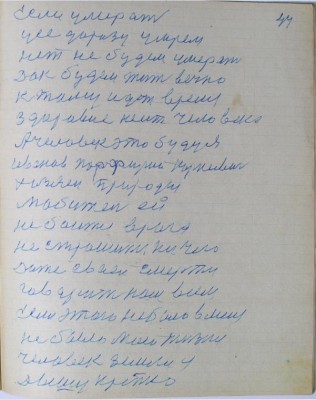 44
Если умерать
усе даразу умрем
нет не будем умерать
Дак будем жить вечно
К тому идет время
Здоравие неит человека
А человек это буду я
иванов Порфирий Корнеевич
хизяен природы
Любител ей
не боится врага
не страшится ничего
Даже своей смерти
говарит нам всем
Если этого небыло в мени
небыло моей жизни
человек земли я
Дышу крепко